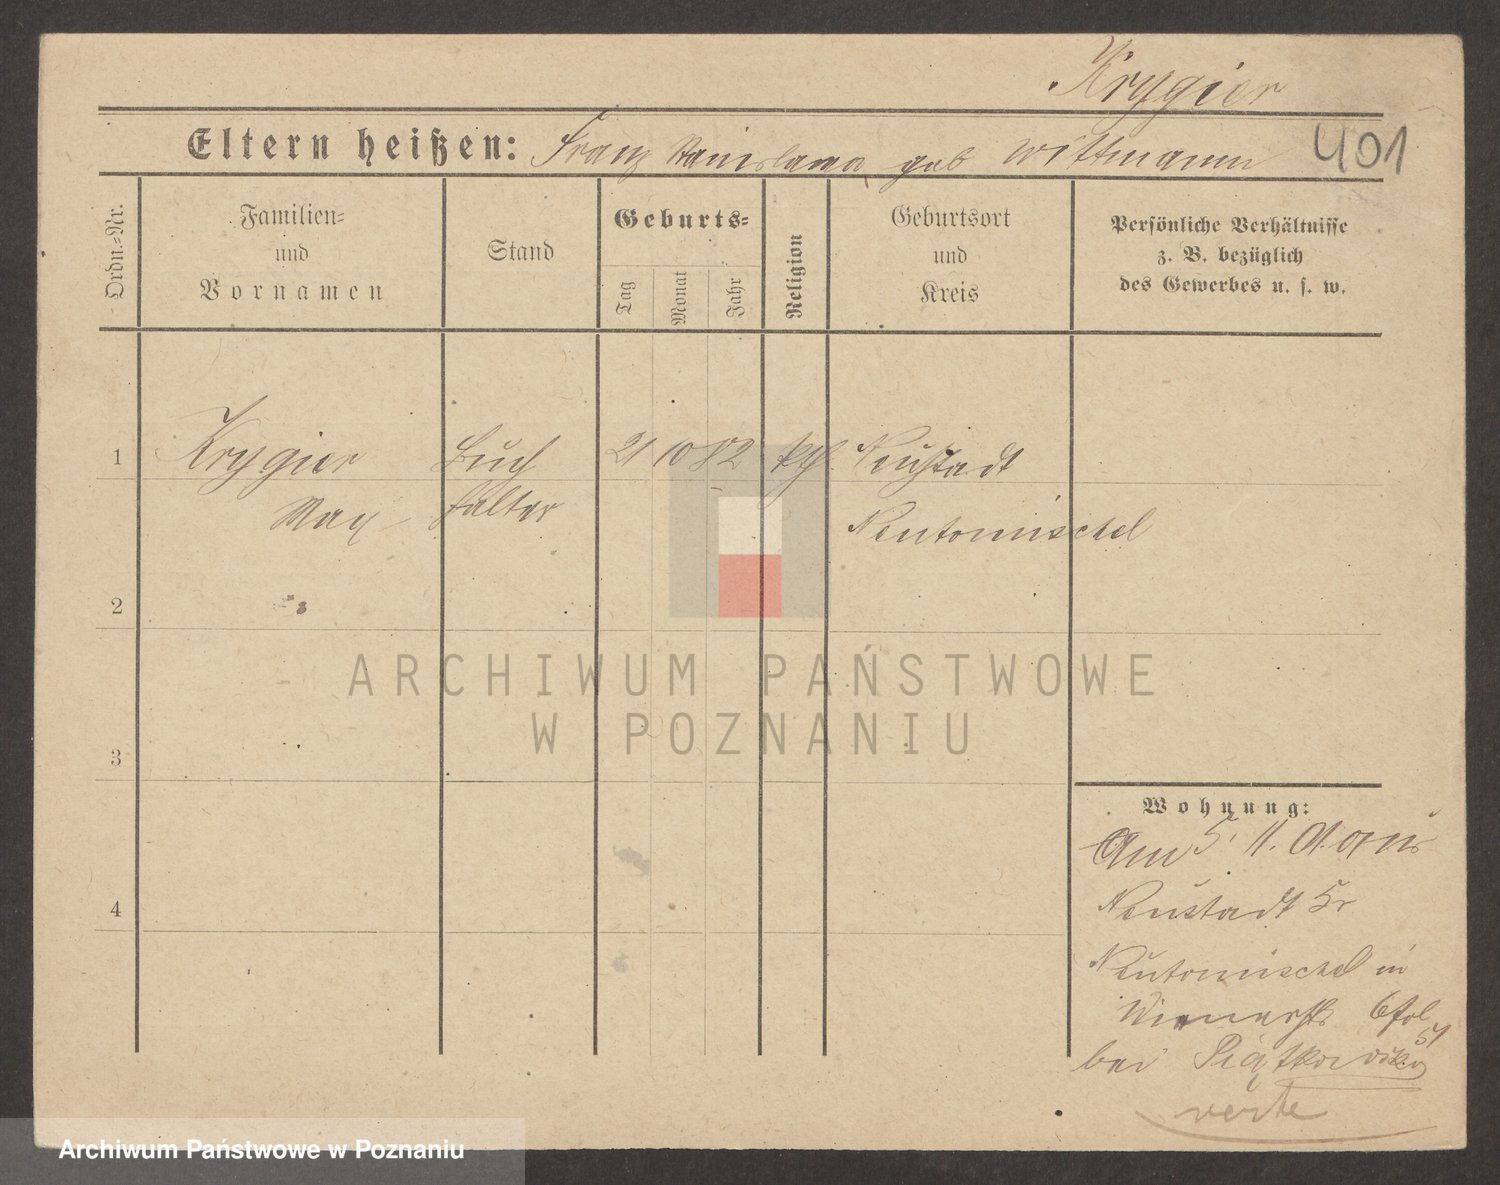 Krygier
401
Eltern heißen: Franz Stanislawa geb Wittmann
Ordn.-Nr.
Familien-
und
Vornamen
Stand
Geburts-
Tag
Monat
Jahr
Religion
Geburtsort
und
Kreis
Persönliche Verhältnisse
z. B. bezüglich
des Gewerbes u. s. w.
1
Krygier Buch 21 10 82 kth. Neustadt
Max halter Neutomischel
2
3
4
ARCHIWUM PAŃSTWOWE
W POZNANIU
Wohnung:
Am 5. 11.
Neustadt Kr
Neutomischel in
6
bei
verte
Archiwum Państwowe w Poznaniu